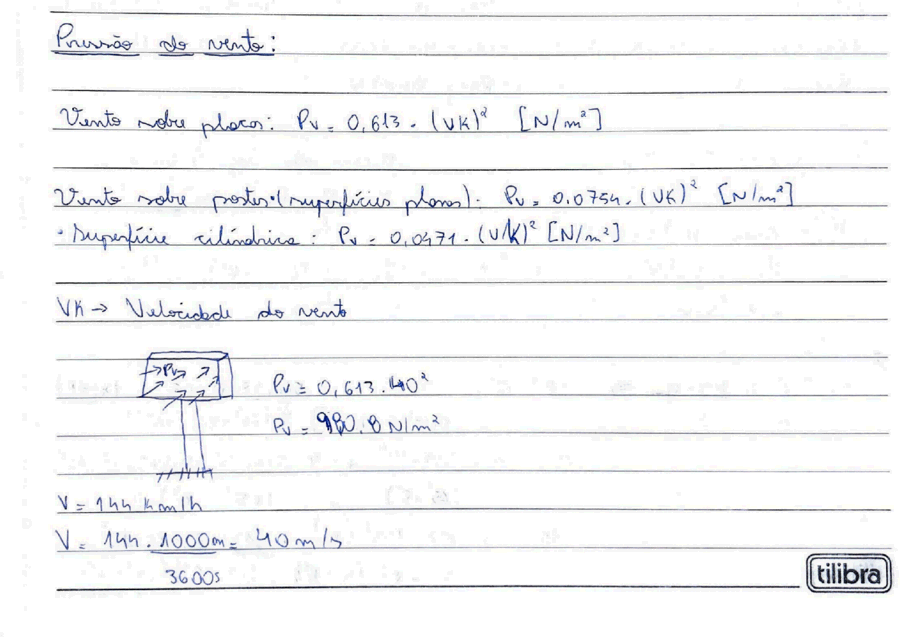 Pressão do vento:
Vento sobre placas: Pv = 0,613 . (VK)² [N/m²]
Vento sobre postes • (superfícies planas): Pv = 0.0754. (VK)² [N/m²]
• Superfície cilíndrica: Pv = 0,0471 . (VK)² [N/m²]
VK → Velocidade do vento
Pv
Pv = 0,613.40²
Pv = 980.8 N/m²
V = 144 km/h
V = 144 . 1000m = 40 m/s
3600s
tilibra